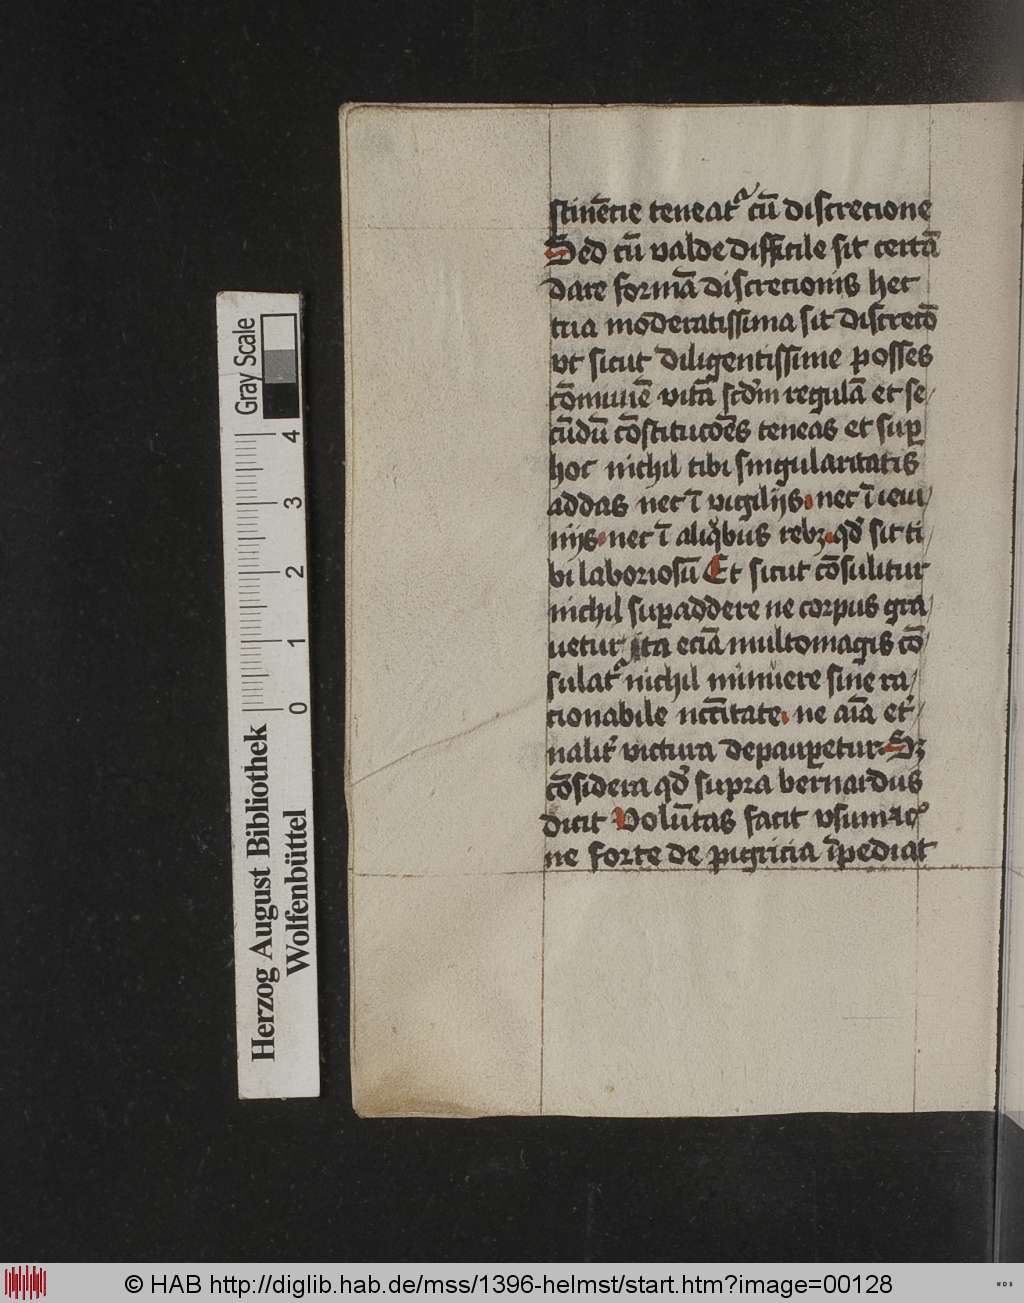 stinẽcie teneatᷣ cũ discrecione
Sed cũ valde difficile sit certã
dare formã discrecionis hec
tua moderatissima sit discrecõ
vt sicut diligentissime posses
cõmunẽ vitã scd̾m regulã et se/
cũdũ cõstitucões teneas et suꝑ
hoc nichil tibi singularitatis
addas nec ĩ vigilijs nec ĩ ieiu/
nijs nec ĩ aliqͥbus rebꝫ qd̾ sit ti/
bi laboriosũ Et sicut cõsulitur
nichil suꝑaddere ne corpus gra/
uetur ita eciã multomagis cõ/
sulatᷣ nichil minuere sine ra/
cionabile ncc̃itate ne aĩa et̾/
nalit̾ victura depauꝑetur Sꝫ
cõsidera qd̾ supra bernardus
dicit Volũtas facit vsum
ne forte de pigricia ĩpediat
Gray Scale
4 3 2 1 0
Herzog August Bibliothek
Wolfenbüttel
© HAB http://diglib.hab.de/mss/1396-helmst/start.htm?image=00128
WDB